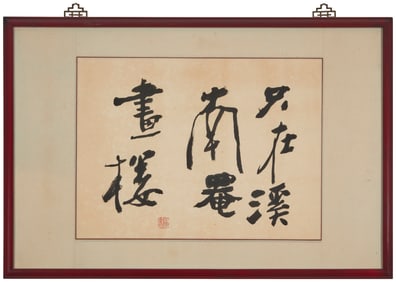 只在溪
南罨
畫樓